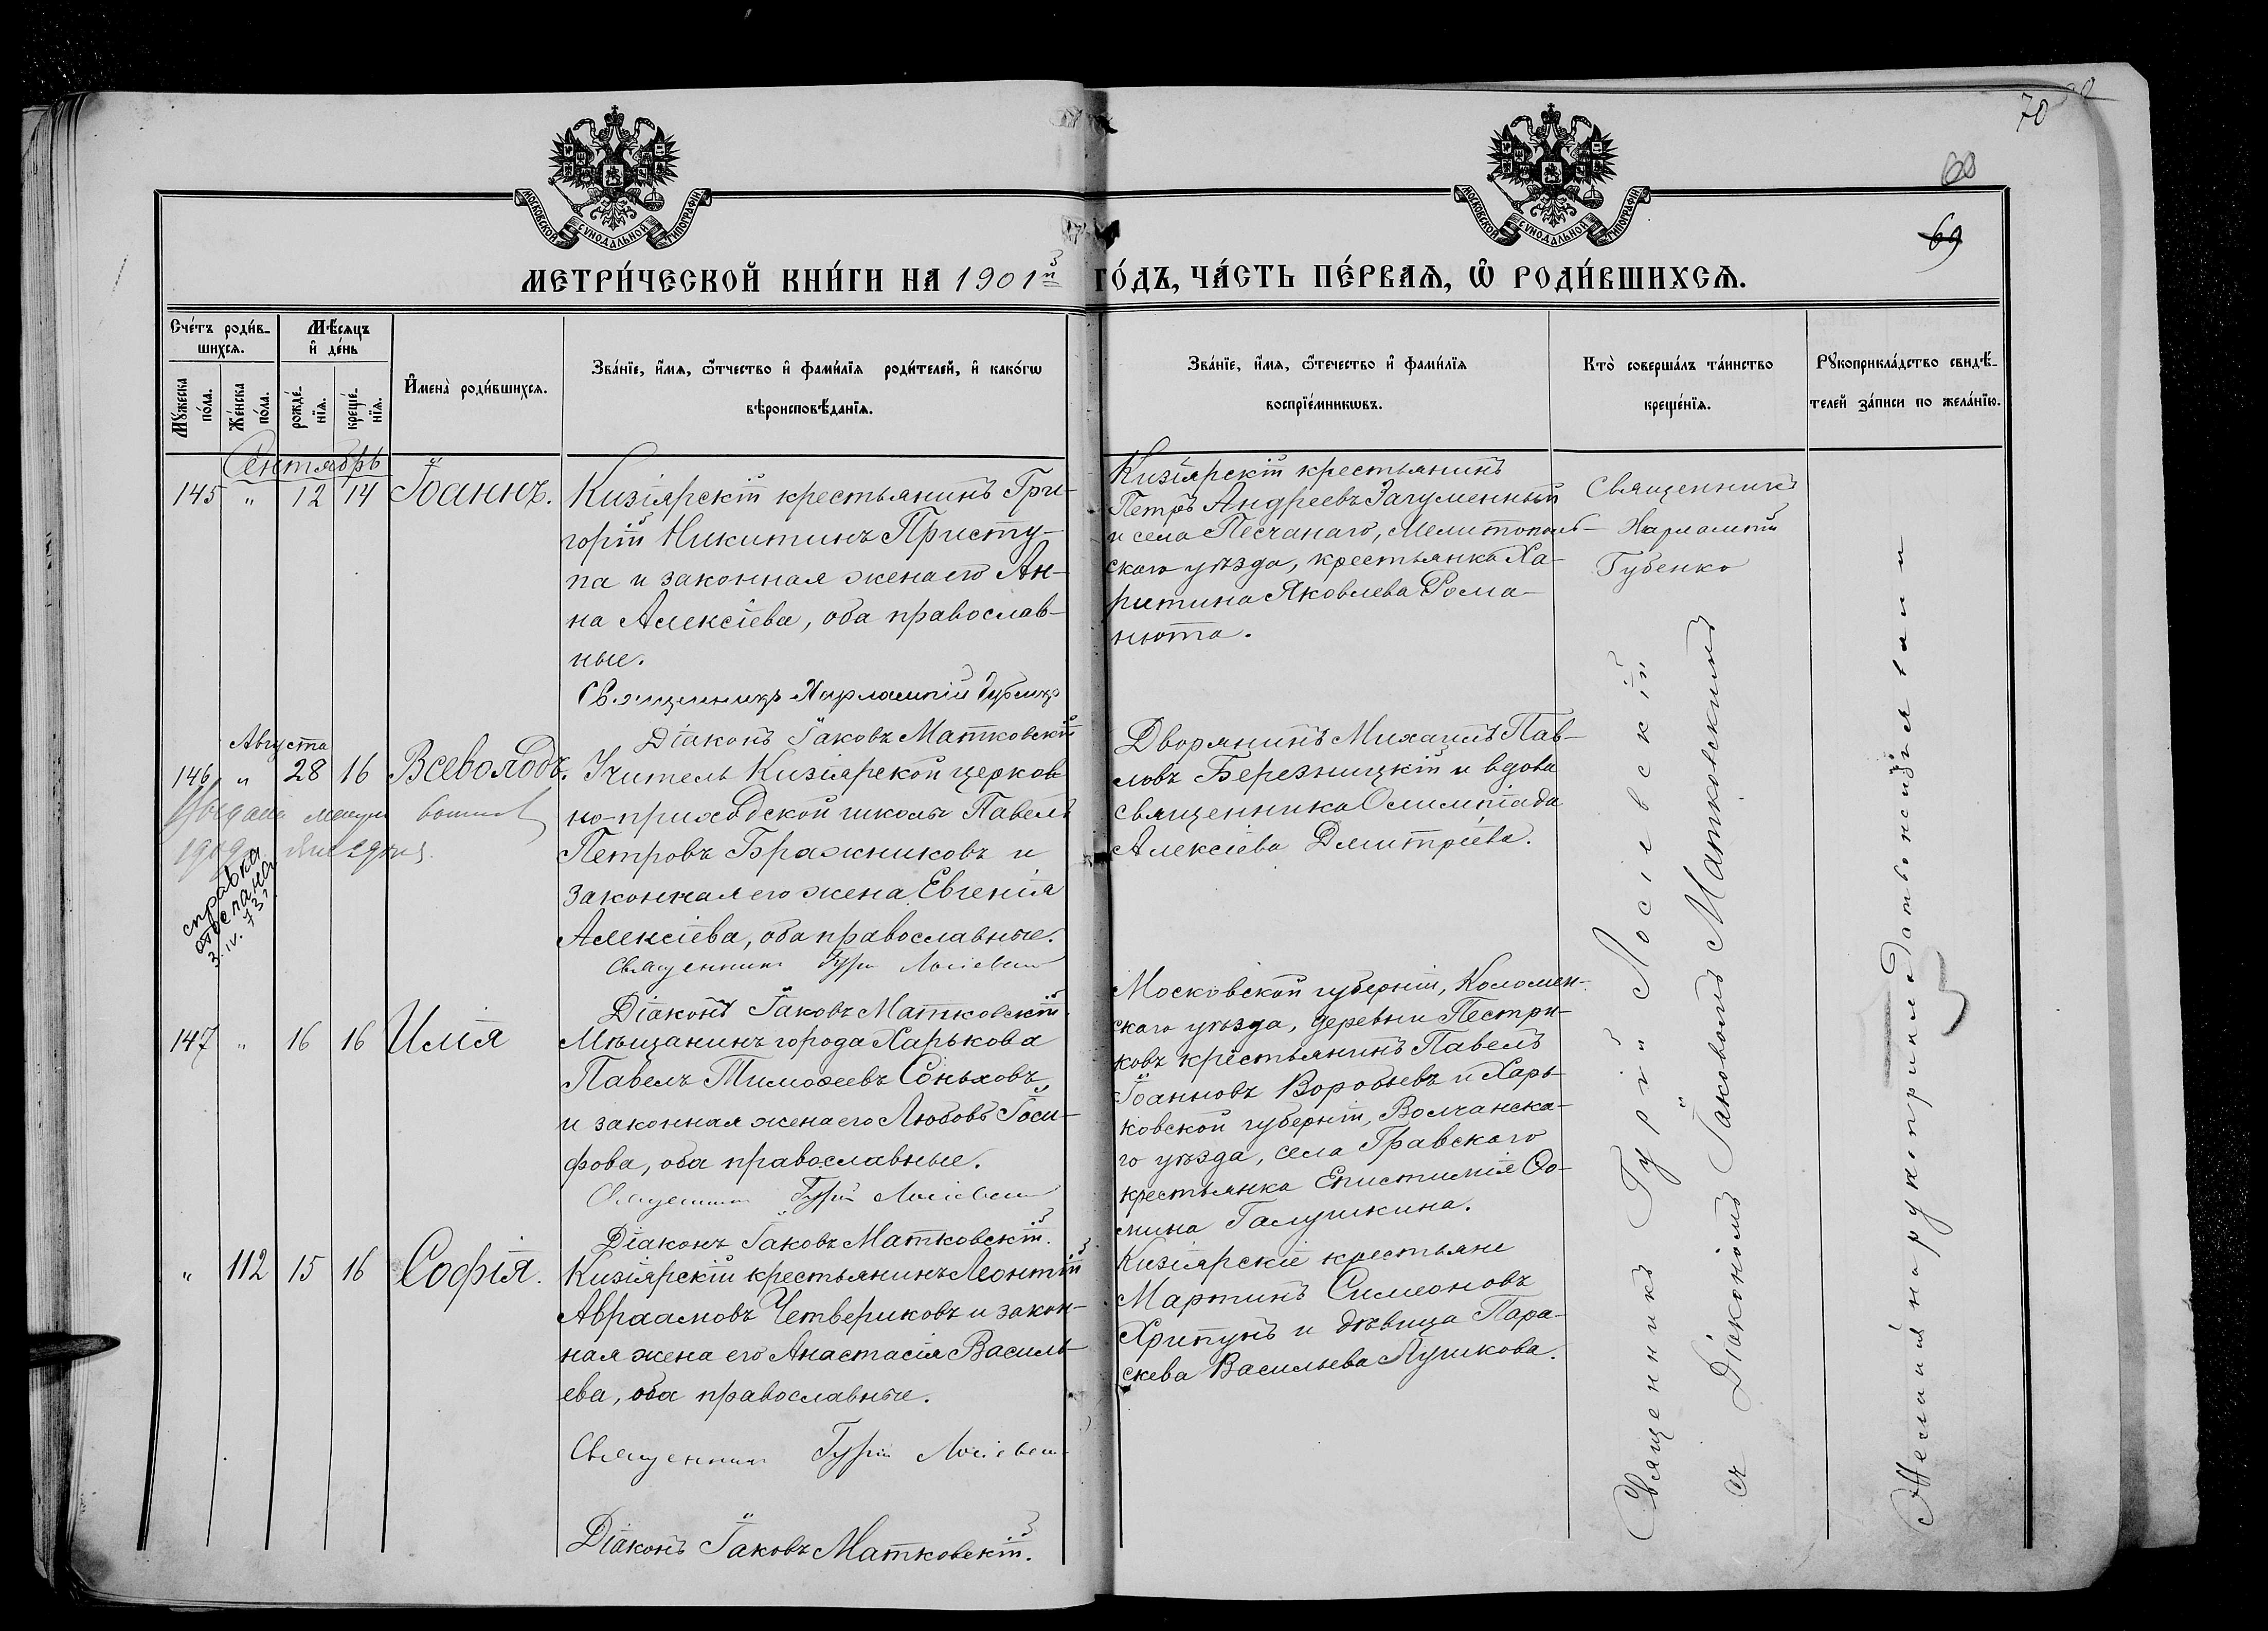 70
69
МОСКОВСКОЙ СѴНОДАЛЬНОЙ ТИПОГРАФІИ
МОСКОВСКОЙ СѴНОДАЛЬНОЙ ТИПОГРАФІИ
МЕТРИ́ЧЕСКОЙ КНИ́ГИ НА 1901й ГО́ДЪ, ЧА́СТЬ ПЕ́РВАѦ, Ѡ҆ РОДИ́ВШИХСѦ.
Сче́тъ роди́в-
шихсѧ.
Мꙋ́жеска
по́ла.
Же́нска
по́ла.
Мѣ́сѧцъ
и҆ де́нь
рожде́-
нїѧ.
креще́-
нїѧ.
И҆мена̀ роди́вшихсѧ.
Зва́нїе, и҆́мѧ, ѻ҆́тчество и҆ фами́лїѧ роди́телей, и҆ како́гѡ
вѣроисповѣ́данїѧ.
Зва́нїе, и҆́мѧ, ѻ҆́течество и҆ фами́лїѧ
воспрїе́мникѡвъ.
Кто̀ соверша́лъ та́инство
креще́нїѧ.
Рꙋкоприкла́дство свидѣ́-
телей за́писи по жела́нїю.
Сентябрь
145 " 12 14 Іоаннъ.
Кизіярскій крестьянинъ Гри-
горій Никитинъ Присту-
па и законная жена его Ан-
на Алексіева, оба православ-
ные.
Священникъ Харлампій Губенко
Діаконъ Іаковъ Матковскій
Кизіярскій крестьянинъ
Петръ Андреевъ Загуменный
и села Песчанаго, Мелитополь-
скаго уѣзда, крестьянка Ха-
ритина Яковлева Рома-
нюта.
Священникъ
Харлампій
Губенко
Августа
146 " 28 16 Всеволодъ.
1909
справка
отослана
3. IV. 73 г.
Учитель Кизіярской церков-
но-приходской школы Павелъ
Петровъ Бражниковъ и
законная его жена Евгенія
Алексіева, оба православные.
Священникъ Гурій Лосіевскій
Діаконъ Іаковъ Матковскій.
Дворянинъ Михаилъ Пав-
ловъ Березницкій и вдова
священника Олимпіада
Алексіева Димитріева.
147 " 16 16 Илія
Мѣщанинъ города Харькова
Павелъ Тимоѳеевъ Соньховъ
и законная жена его Любовь Іоси-
фова, оба православные.
Священникъ Гурій Лосіевскій
Діаконъ Іаковъ Матковскій.
Московской губерніи, Коломен-
скаго уѣзда, деревни Пестри-
ковъ крестьянинъ Павелъ
Іоанновъ Воробьевъ и Харь-
ковской губерніи, Волчанска-
го уѣзда, села Графского
крестьянка Епистимія Ѳо-
мина Галушкина.
" 112 15 16 Софія.
Кизіярскій крестьянинъ Леонтій
Авраамовъ Четвериковъ и закон-
ная жена его Анастасія Василь-
ева, оба православные.
Священникъ Гурій Лосіевскій
Діаконъ Іаковъ Матковскій.
Кизіярскіе крестьяне
Мартинъ Симеоновъ
Хрипунъ и дѣвица Пара-
скева Васильева Лушкова.
Священникъ Гурій Лосіевскій
съ Діакономъ Іаковомъ Матковскимъ